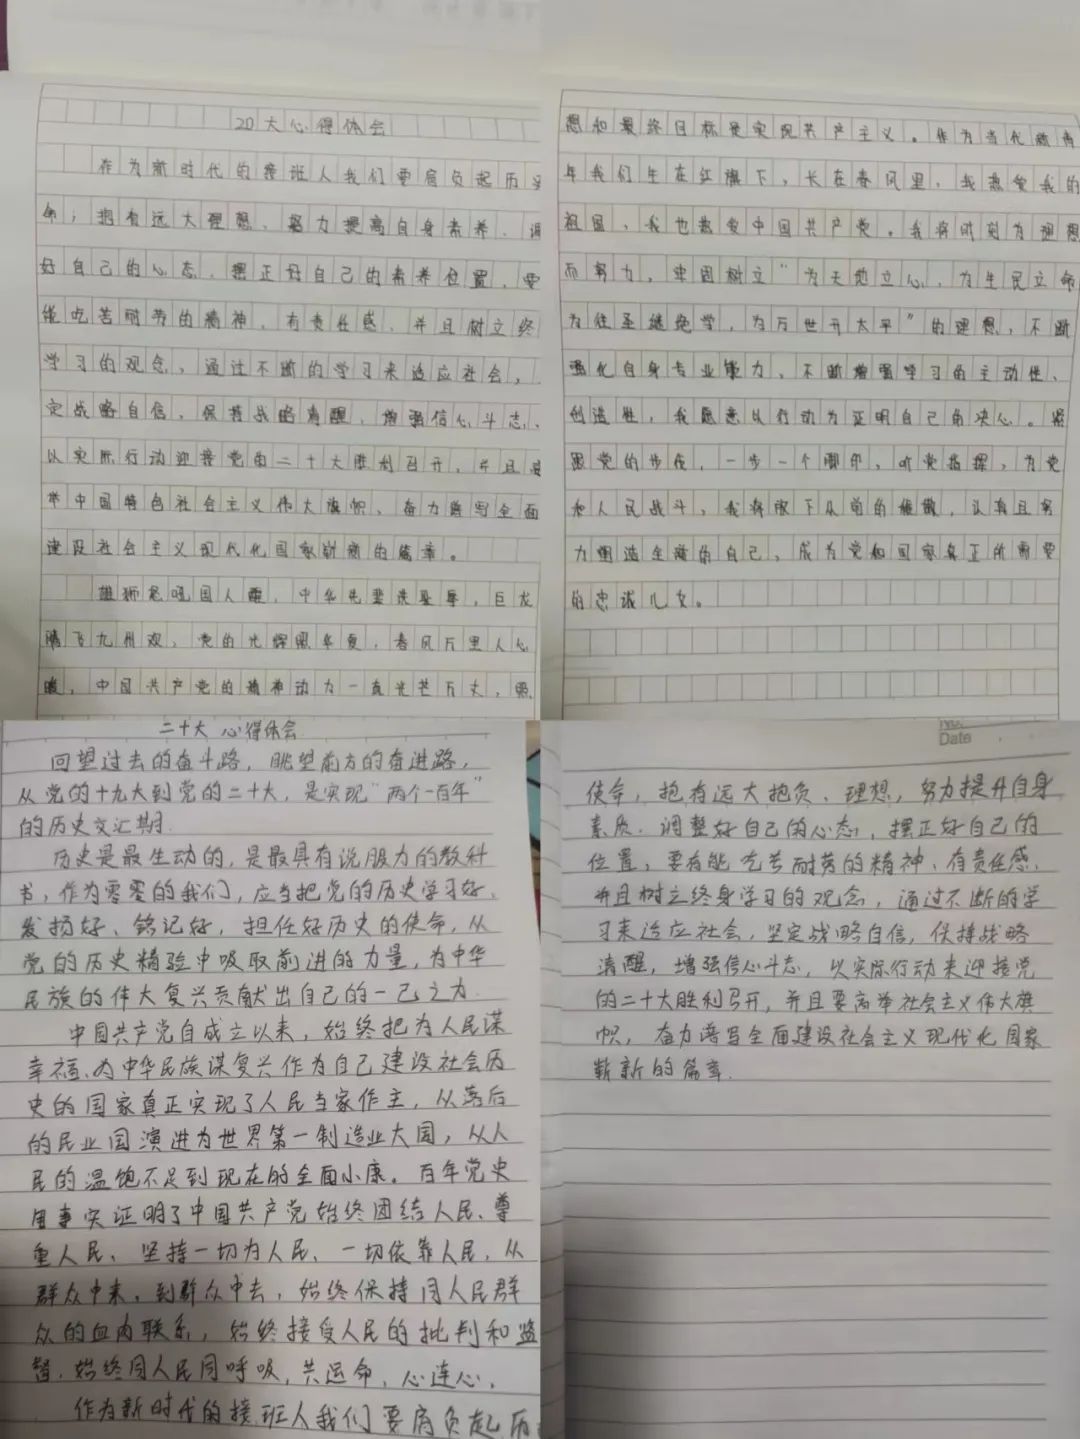 20大心得体会
作为新时代的接班人我们要肩负起历
命；拥有远大理想，努力提高自身素养，调
好自己的心态，摆正好自己的素养位置，要
能吃苦耐劳的精神，有责任感，并且树立终
学习的观念，通过不断的学习来适应社会，
定战略自信，保持战略清醒，增强信心斗志，
以实际行动迎接党的二十大胜利召开，并且
举中国特色社会主义伟大旗帜，奋力谱写全面
建设社会主义现代化国家崭新的篇章。
雄狮怒吼国人醒，中华先辈洗耻辱，巨龙
腾飞九州欢，党的光辉照华夏，春风万里人心
暖，中国共产党的精神动力一直光芒万丈，
想和最终目标是实现共产主义。作为当代新青
年我们生在红旗下，长在春风里，我热爱我的
祖国，我也热爱中国共产党。我将时刻为理想
而努力，牢固树立“为天地立心，为生民立命
为往圣继绝学，为万世开太平”的理想，不断
强化自身专业能力，不断增强学习的主动性、
创造性，我愿意以行动为证明自己的决心。紧
跟党的步伐，一步一个脚印，听党指挥，为党
和人民战斗，我将放下从前的懒散，认真且努
力塑造全新的自己，成为党和国家真正所需要
的忠诚儿女。
二十大 心得体会
回望过去的奋斗路，眺望前方的奋进路，
从党的十九大到党的二十大，是实现“两个一百年”
的历史交汇期.
历史是最生动的，是最具有说服力的教科
书，作为零零的我们，应当把党的历史学习好，
发扬好、铭记好，担任好历史的使命，从
党的历史精验中吸取前进的力量，为中华
民族的伟大复兴贡献出自己的一己之力.
中国共产党自成立以来，始终把为人民谋
幸福、为中华民族谋复兴作为自己建设社会历
史的国家真正实现了人民当家作主，从落后
的民业国演进为世界第一制造业大国，从人
民的温饱不足到现在的全面小康。百年党史
用事实证明了中国共产党始终团结人民、尊
重人民、坚持一切为人民、一切依靠人民，从
群众中来，到群众中去，始终保持同人民群
众的血肉联系，始终接受人民的批判和监
督，始终同人民同呼吸，共运命，心连心，
作为新时代的接班人我们要肩负起历
No.
Date
使命，抱有远大抱负、理想，努力提升自身
素质，调整好自己的心态，摆正好自己的
位置，要有能吃苦耐劳的精神、有责任感，
并且树立终身学习的观念，通过不断的学
习来适应社会，坚定战略自信，保持战略
清醒，增强信心斗志，以实际行动来迎接党
的二十大胜利召开，并且要高举社会主义伟大旗
帜，奋力谱写全面建设社会主义现代化国家
崭新的篇章.